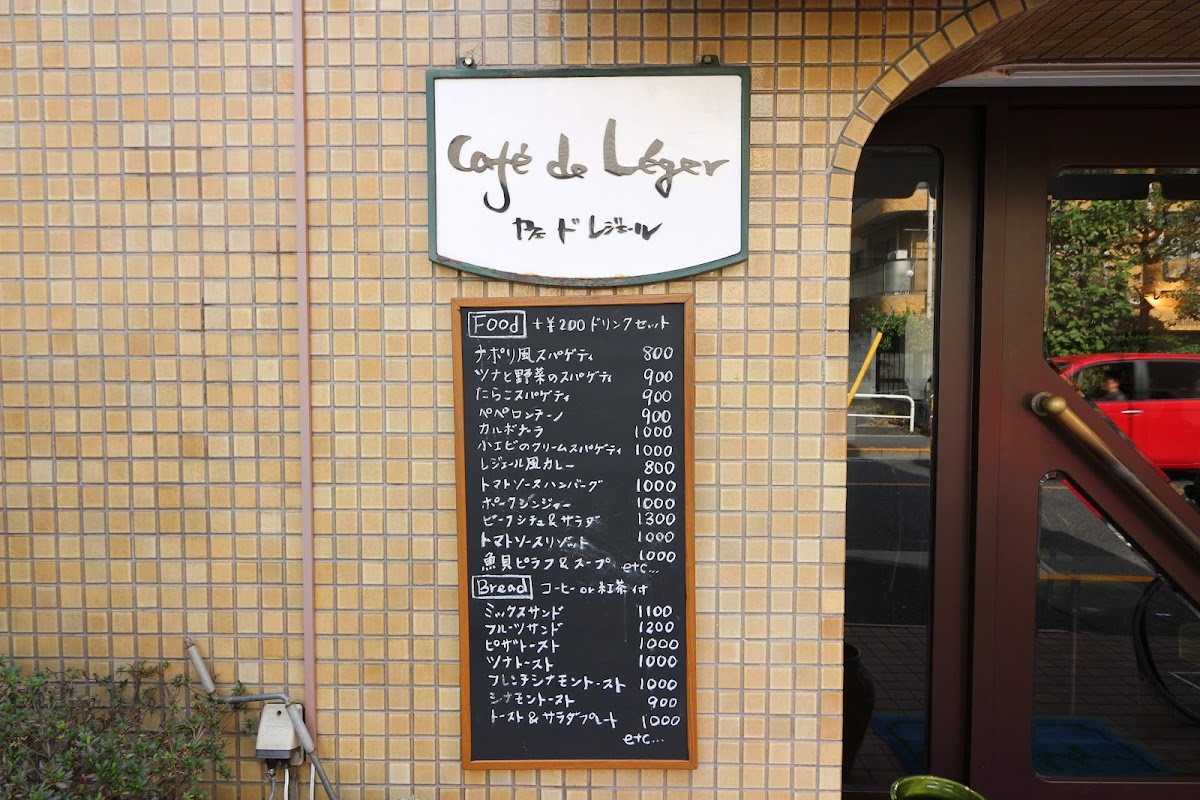 Café de Léger
カフェ ド レジェール
Food +¥200 ドリンクセット
ナポリ風スパゲティ 800
ツナと野菜のスパゲティ 900
たらこスパゲティ 900
ペペロンチーノ 900
カルボナーラ 1000
小エビのクリームスパゲティ 1000
レジェール風カレー 800
トマトソースハンバーグ 1000
ポークジンジャー 1000
ビーフシチュ&サラダ 1300
トマトソースリゾット 1000
魚貝ピラフ&スープ 1000
etc...
Bread コーヒー or 紅茶付
ミックスサンド 1100
フルーツサンド 1200
ピザトースト 1000
ツナトースト 1000
フレンチシナモントースト 1000
シナモントースト 900
トースト&サラダプレート 1000
etc...